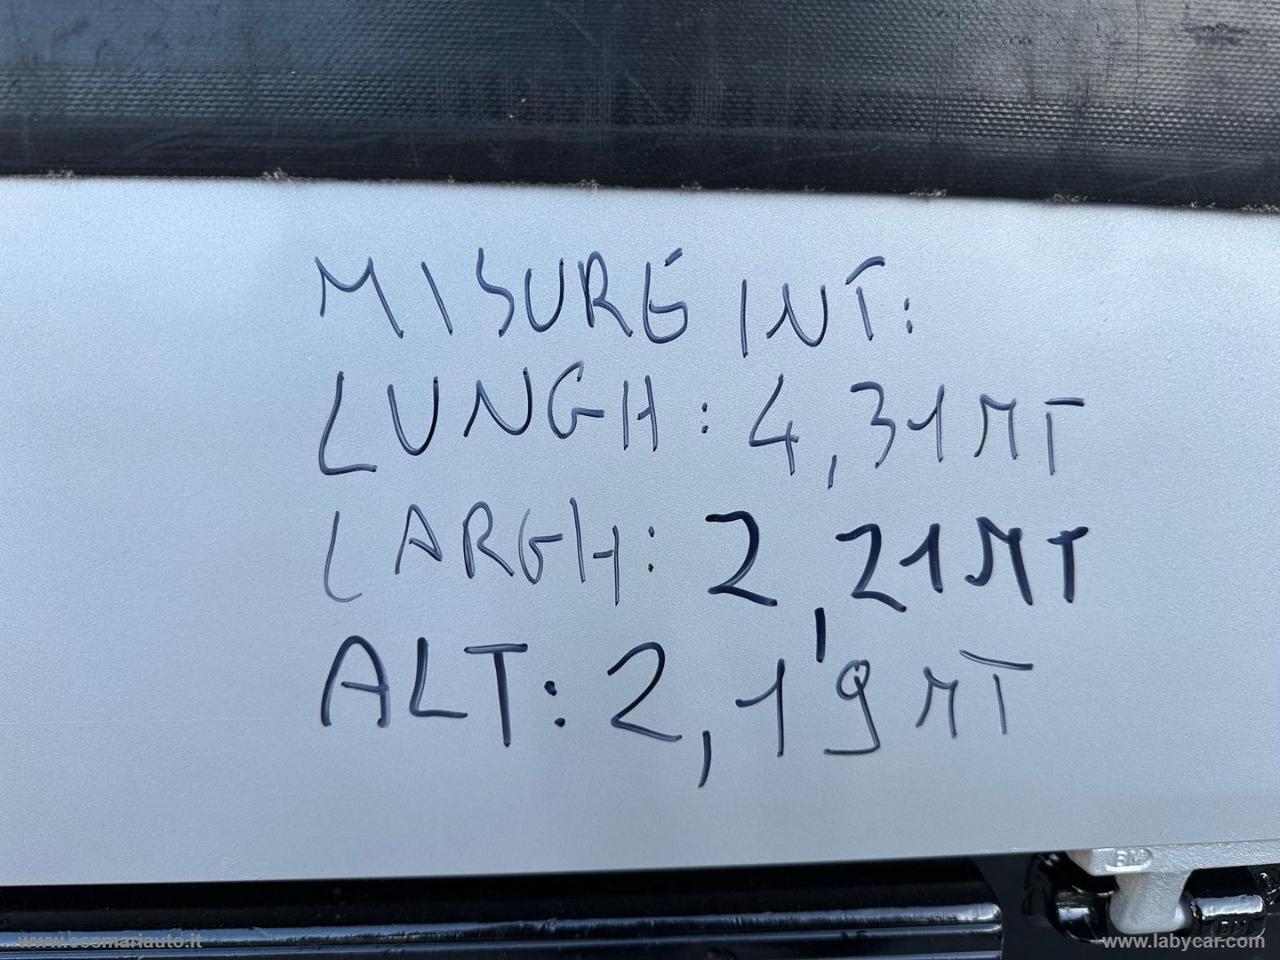 MISURE INT:
LUNGH: 4,31 MT
LARGH: 2,21 MT
ALT: 2,19 MT
BM
www.cosmariauto.it
www.labycar.com